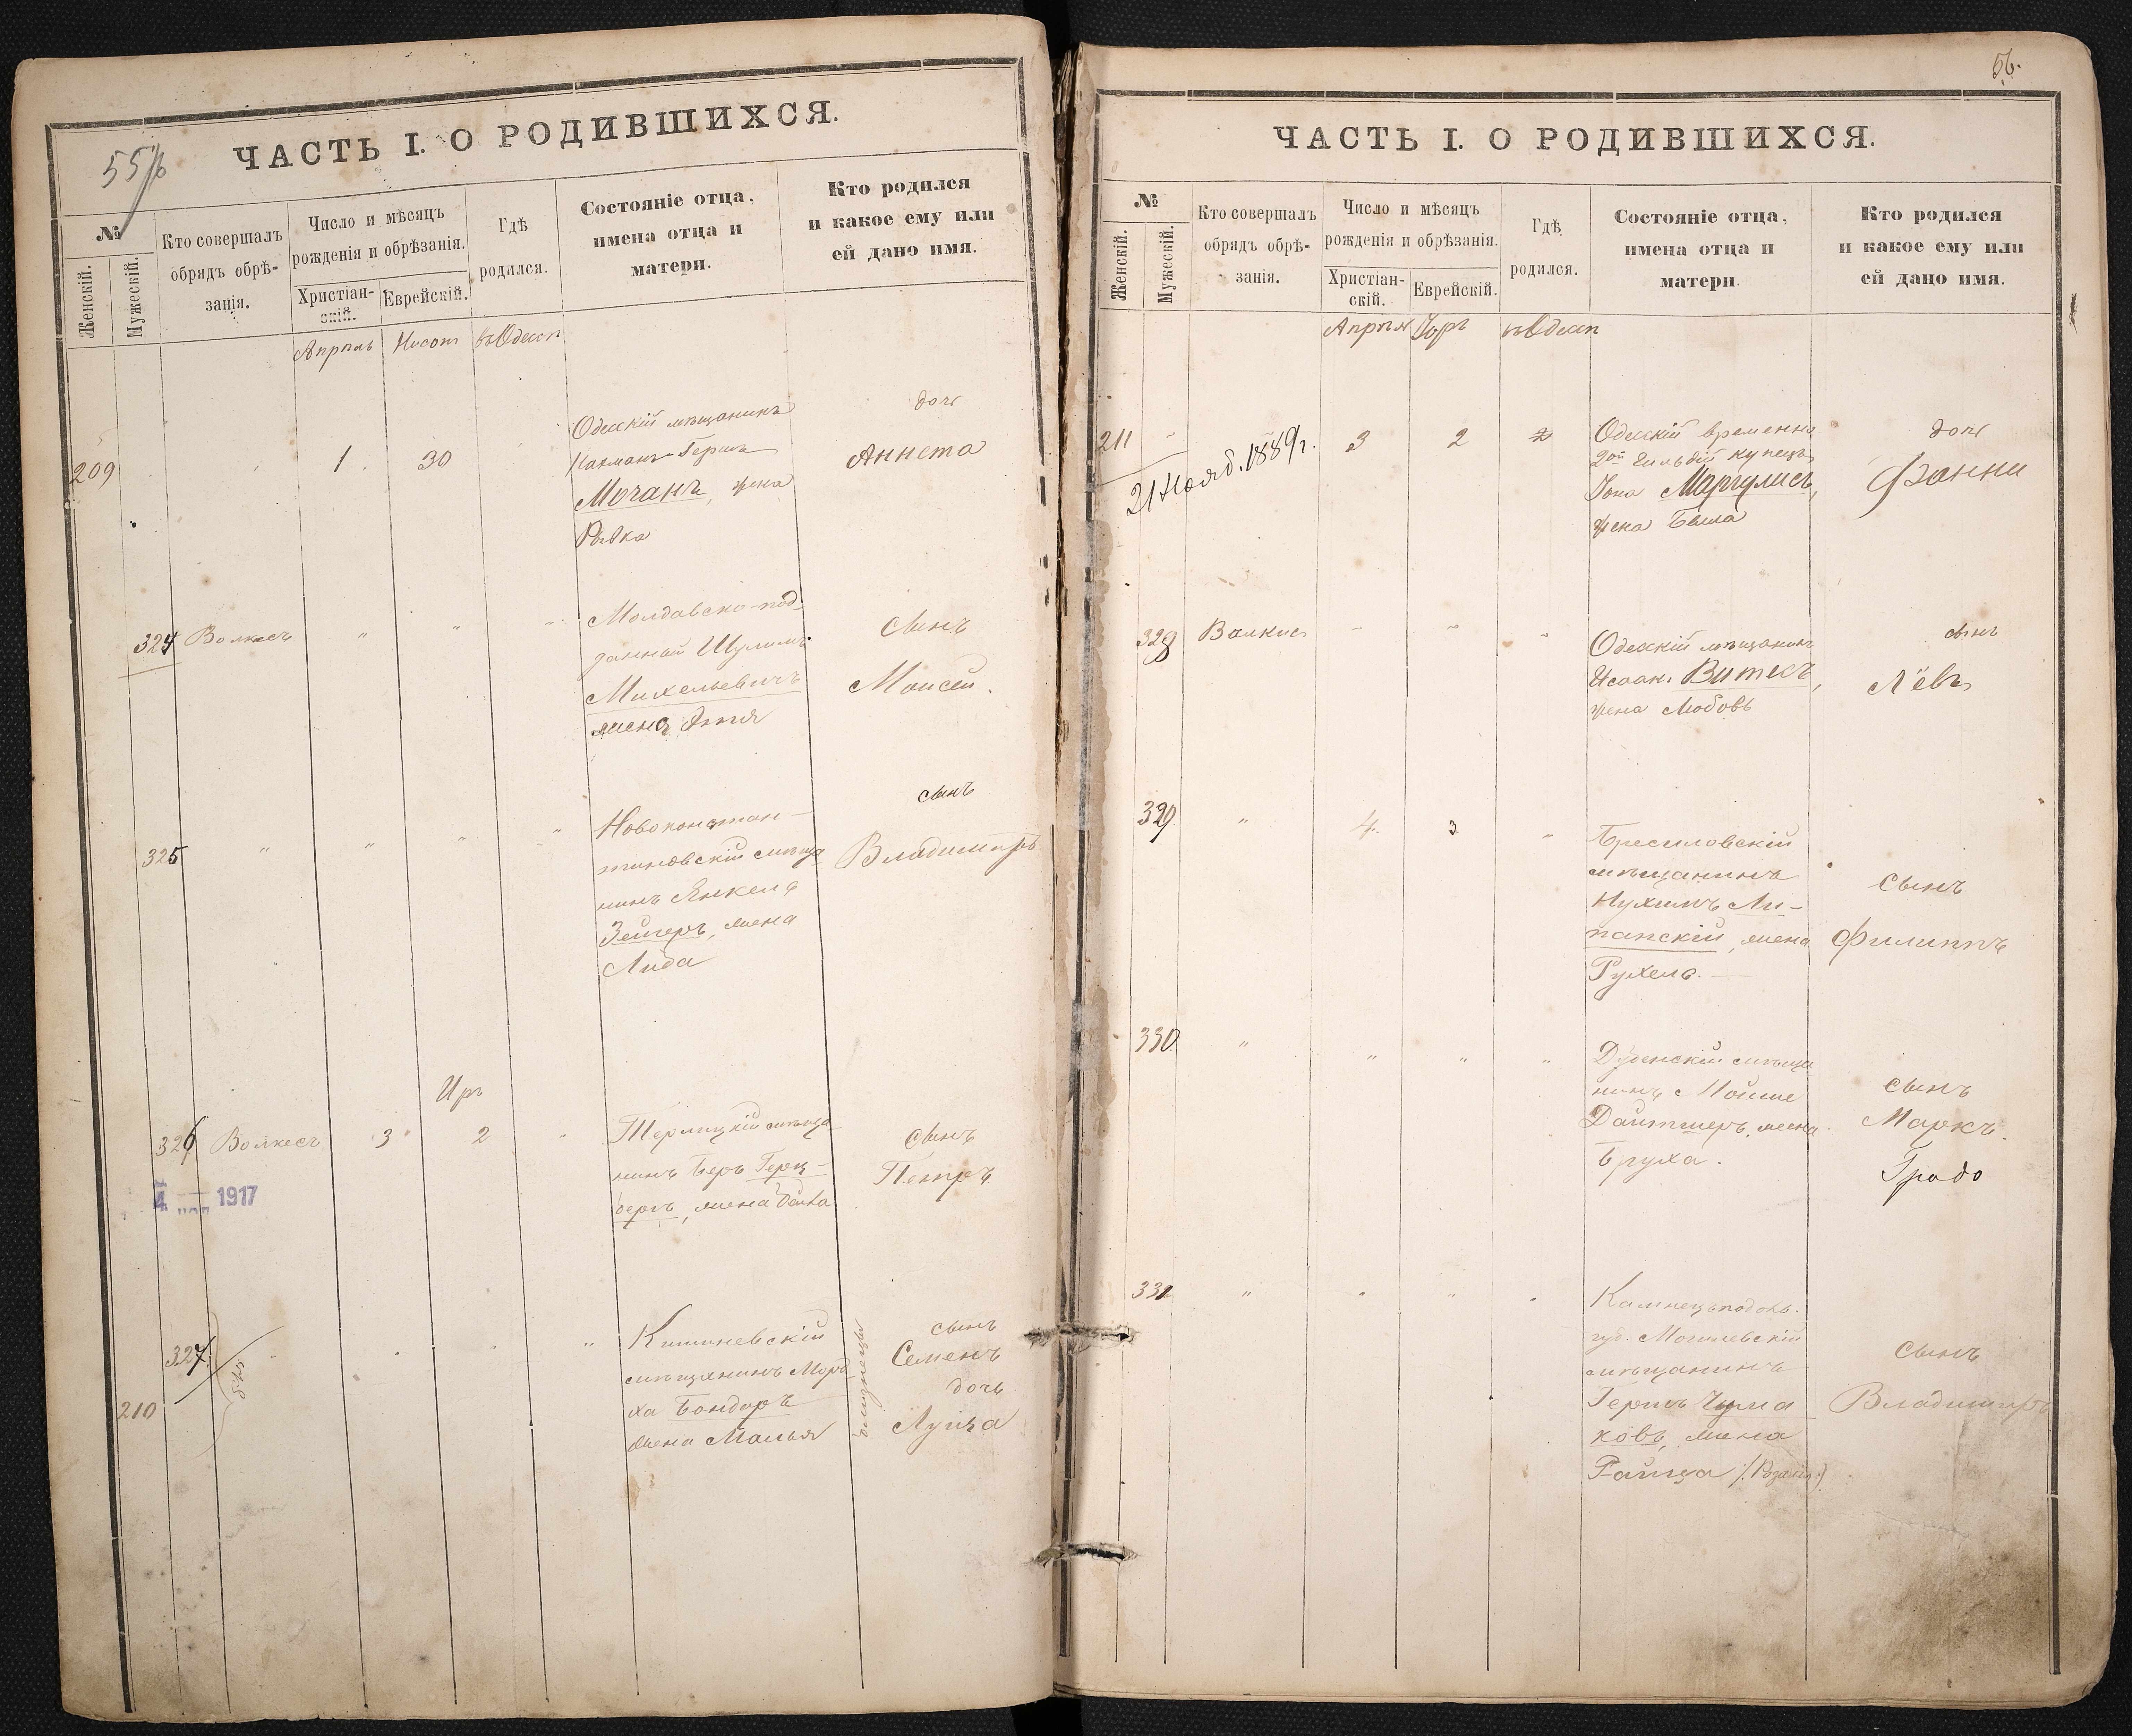 55/б
ЧАСТЬ I. О РОДИВШИХСЯ.
№
Женскій.
Мужескій.
Кто совершалъ
обрядъ обрѣ-
занія.
Число и мѣсяцъ
рожденія и обрѣзанія.
Христіан-
скій.
Еврейскій.
Гдѣ
родился.
Состояніе отца,
имена отца и
матери.
Кто родился
и какое ему или
ей дано имя.
Апрѣль
Нисонъ
въ Одессѣ
209
1
30
Одесскій мѣщанинъ
Калманъ-Гершъ
Мочанъ, жена
Ривка
дочь
Аннета
324
Волкесъ
"
"
"
Молдавско-под-
данный Шулимъ
Михельевичъ
жена Этя
сынъ
Моисей.
325
"
"
"
"
Новоконстан-
тиновскій мѣща
нинъ Янкель
Зейгеръ, жена
Лида
сынъ
Владиміръ
Иръ
326
Волкесъ
3
2
"
мѣща-
нинъ Беръ Герц-
бергъ, жена
сынъ
Петръ
1917
327
210
"
"
"
"
Кишиневскій
мѣщанинъ Морд
ха Бондаръ
жена Малья
близнецы
сынъ
Семенъ
дочь
Луиза
56.
ЧАСТЬ I. О РОДИВШИХСЯ.
№
Женскій.
Мужескій.
Кто совершалъ
обрядъ обрѣ-
занія.
Число и мѣсяцъ
рожденія и обрѣзанія.
Христіан-
скій.
Еврейскій.
Гдѣ
родился.
Состояніе отца,
имена отца и
матери.
Кто родился
и какое ему или
ей дано имя.
Апрѣль
Іоръ
въ Одессѣ
211
21 Нояб. 1889 г.
3
2
Одесскій временно
2ой гильдіи купецъ
Іона Маргулисъ,
жена Бейла
дочь
Фанни
328
Валкисъ
"
"
"
Одесскій мѣщанинъ
Исаакъ Витесъ,
жена Любовь
сынъ
Лёвъ
329
"
4.
3
"
мѣщанинъ
Нухимъ Ли-
панскій, жена
Рухель.
сынъ
Филиппъ
330
"
"
"
"
Дубенскій мѣща
нинъ Мойше
Дайтшеръ, жена
Бруха.
сынъ
Маркъ.
331
"
"
"
"
Каменецъподоль.
губ. Могилевскій
мѣщанинъ
Гершъ Чума
ковъ, жена
Райца (Розалія)
сынъ
Владиміръ